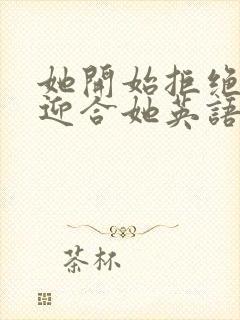 她開始拒絕
迎合她英語
茶杯